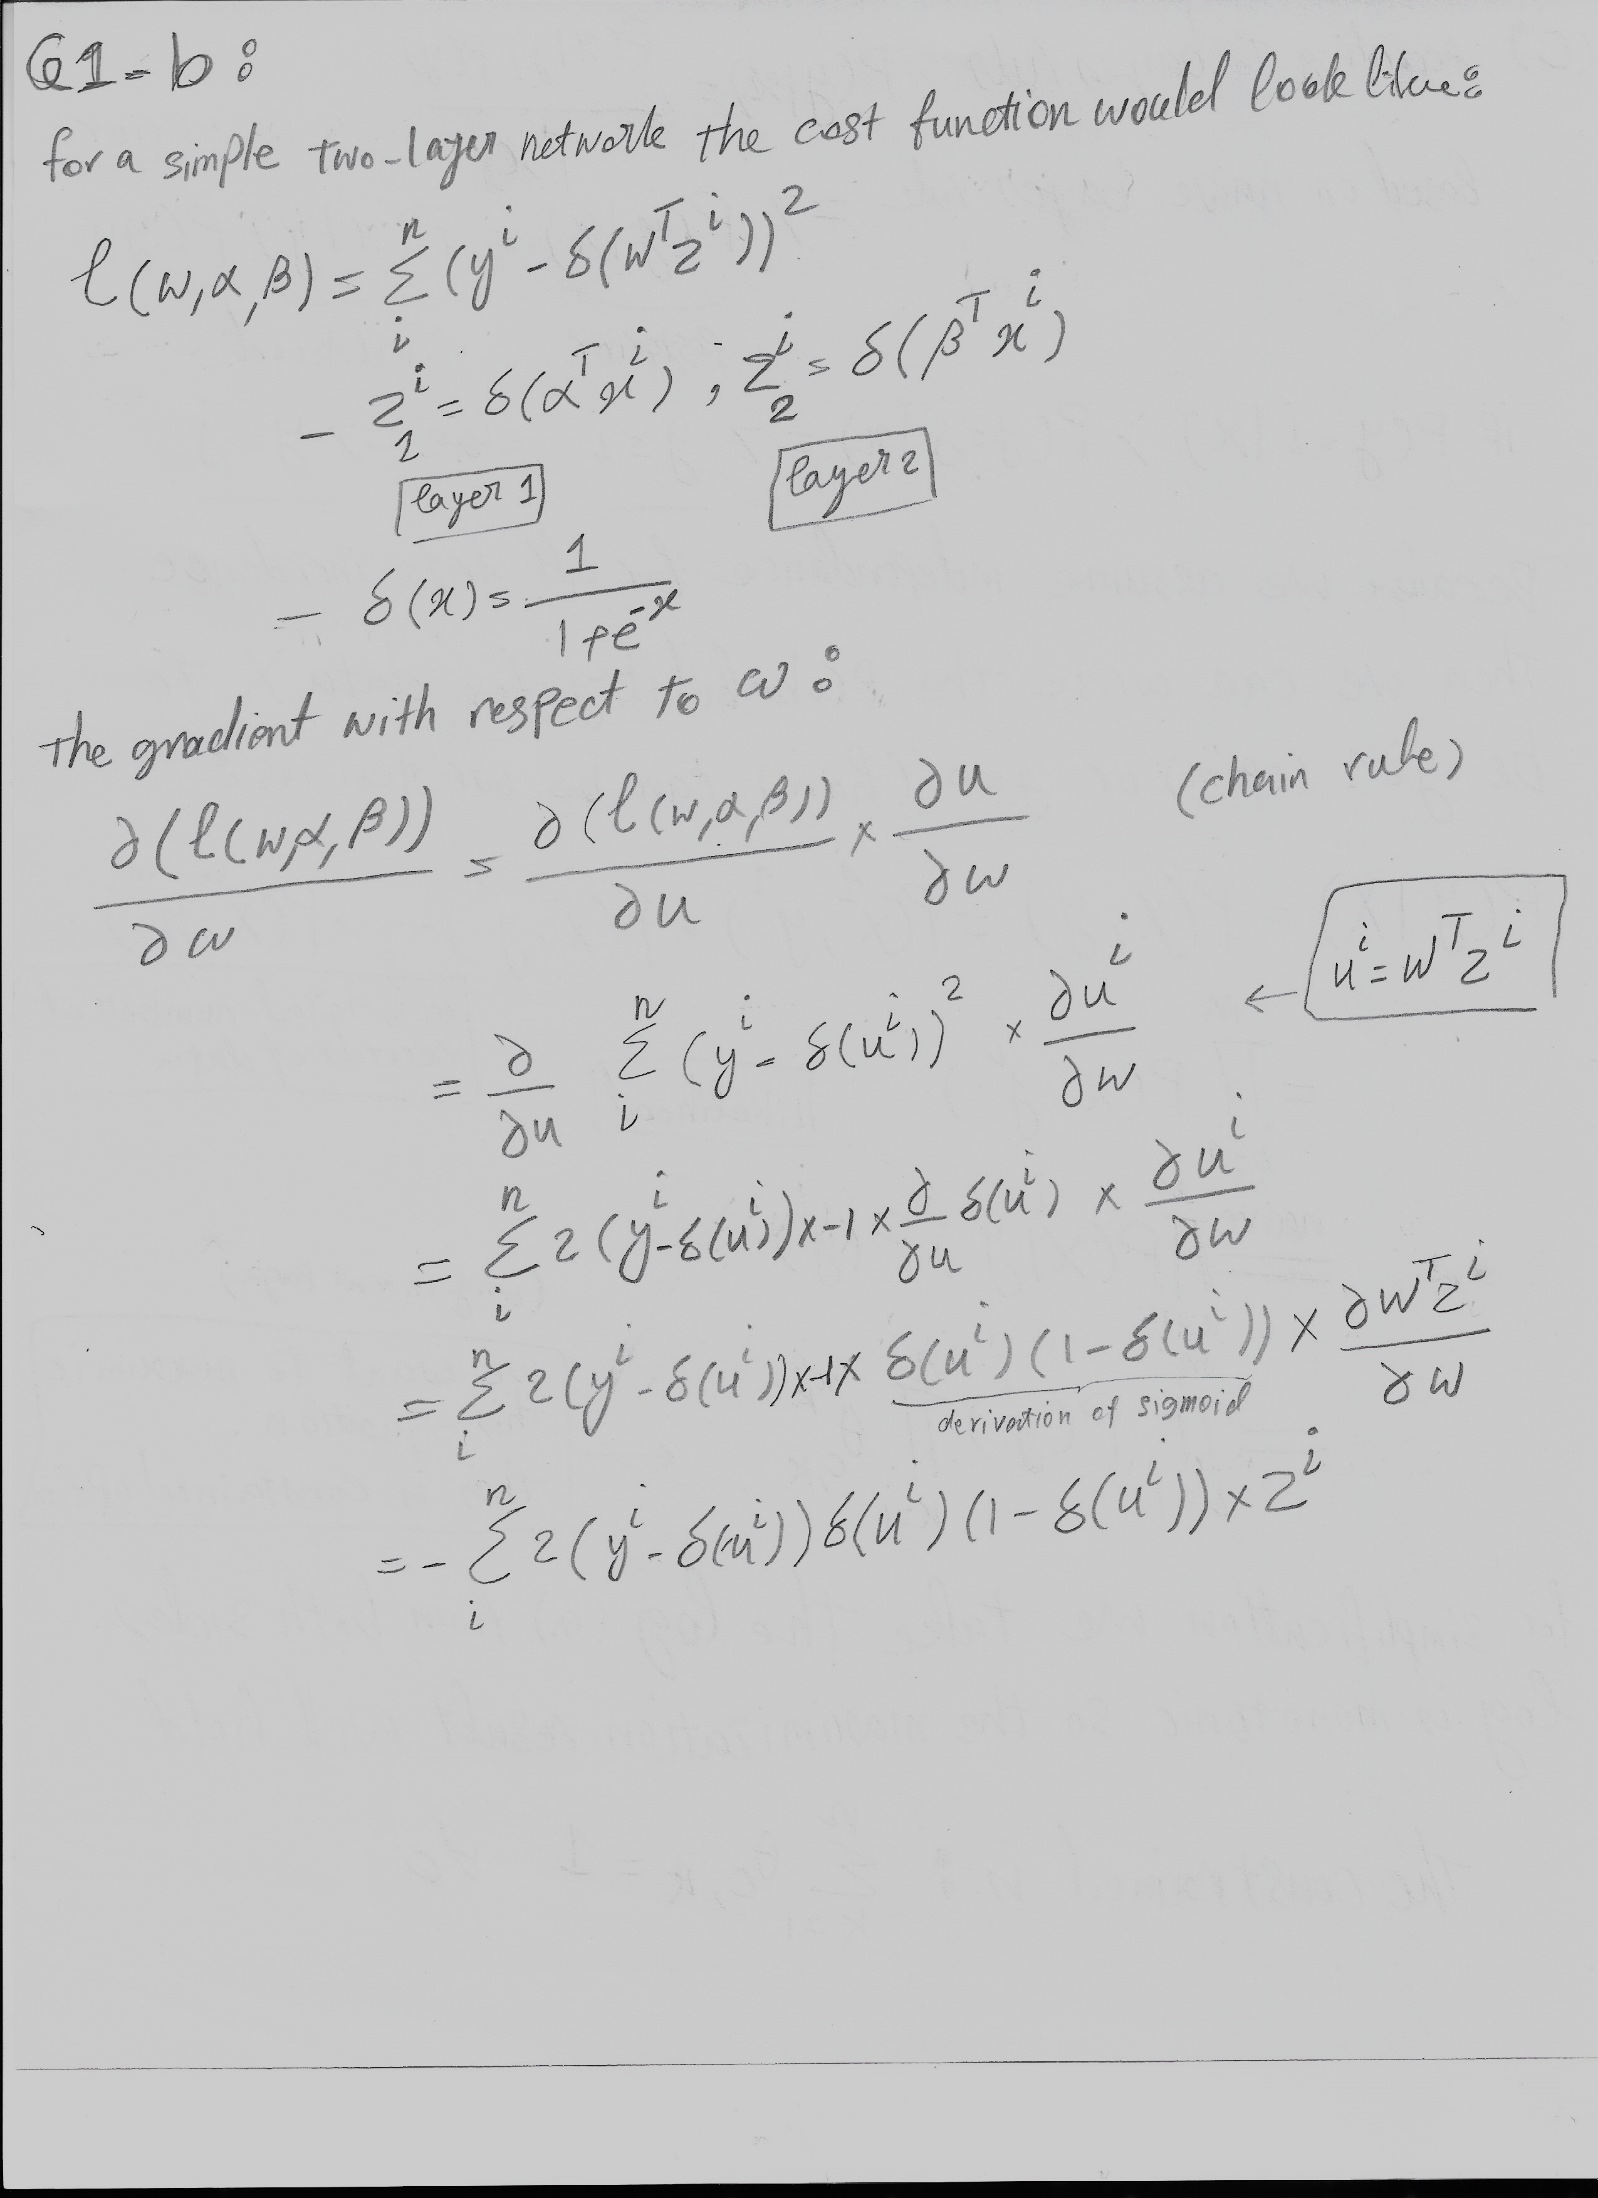 Q1-b:
for a simple two-layer network the cost function would look like:
l(w,α,β) = Σ_i^n (y^i - δ(w^T z^i))^2
- z_1^i = δ(α^T x^i) ; z_2^i = δ(β^T x^i)
layer 1 layer 2
- δ(x) = 1/(1+e^-x)
The gradient with respect to w:
∂(l(w,α,β))/∂w = ∂(l(w,α,β))/∂u × ∂u/∂w (chain rule)
= ∂/∂u Σ_i^n (y^i - δ(u^i))^2 × ∂u^i/∂w ← u^i = w^T z^i
= Σ_i^n 2(y^i - δ(u^i)) × -1 × ∂/∂u δ(u^i) × ∂u^i/∂w
= Σ_i^n 2(y^i - δ(u^i)) × -1 × δ(u^i)(1 - δ(u^i)) × ∂w^T z^i/∂w
derivation of sigmoid
= - Σ_i^n 2(y^i - δ(u^i)) δ(u^i)(1 - δ(u^i)) × z^i